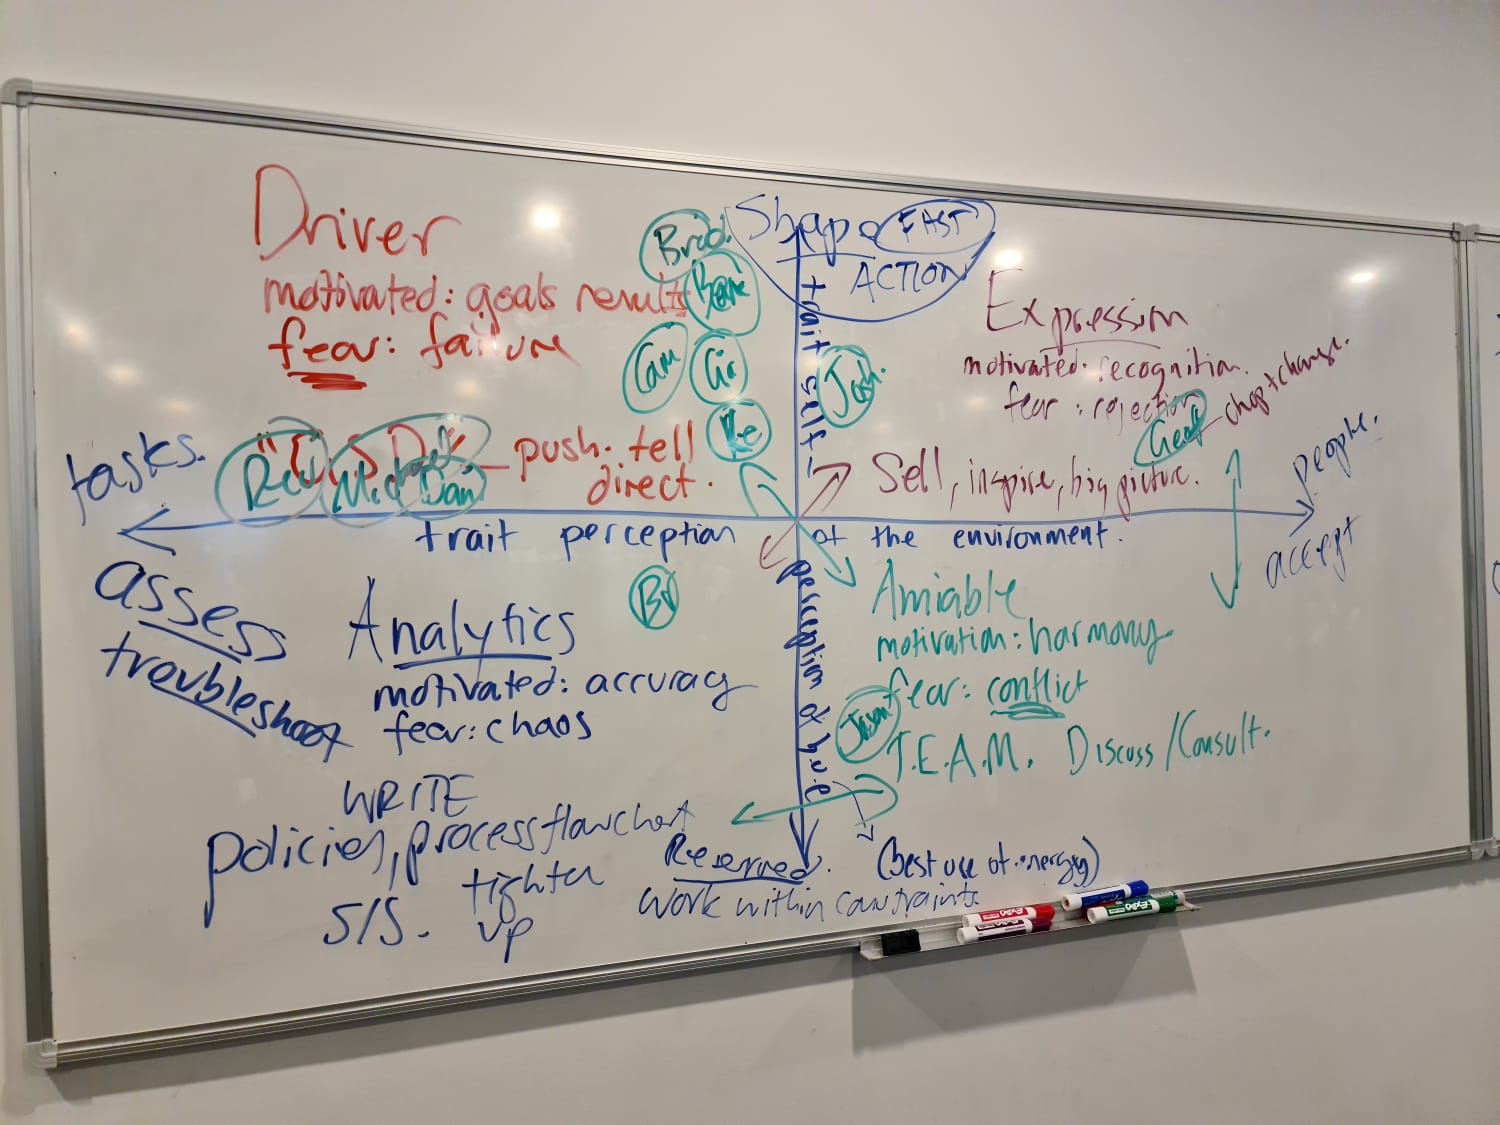 Driver
motivated: goals results
fear: failure
push. tell
direct.
Brad.
Cam
Shape FAST
ACTION
trait self-
perception of h.v.e
Josh.
Expression
motivated: recognition.
fear: rejection
Geoff - chop + change.
Sell, inspire, big picture.
tasks.
people.
Dan
trait perception of the environment.
accept
assess
troubleshoot
Analytics
motivated: accuracy
fear: chaos
WRITE
policies, process flowchart
tighten
up
S/S.
Amiable
motivation: harmony.
fear: conflict
Jason
T.E.A.M. Discuss / Consult.
Reserved. (best use of energy)
work within constraints
EXPO
EXPO